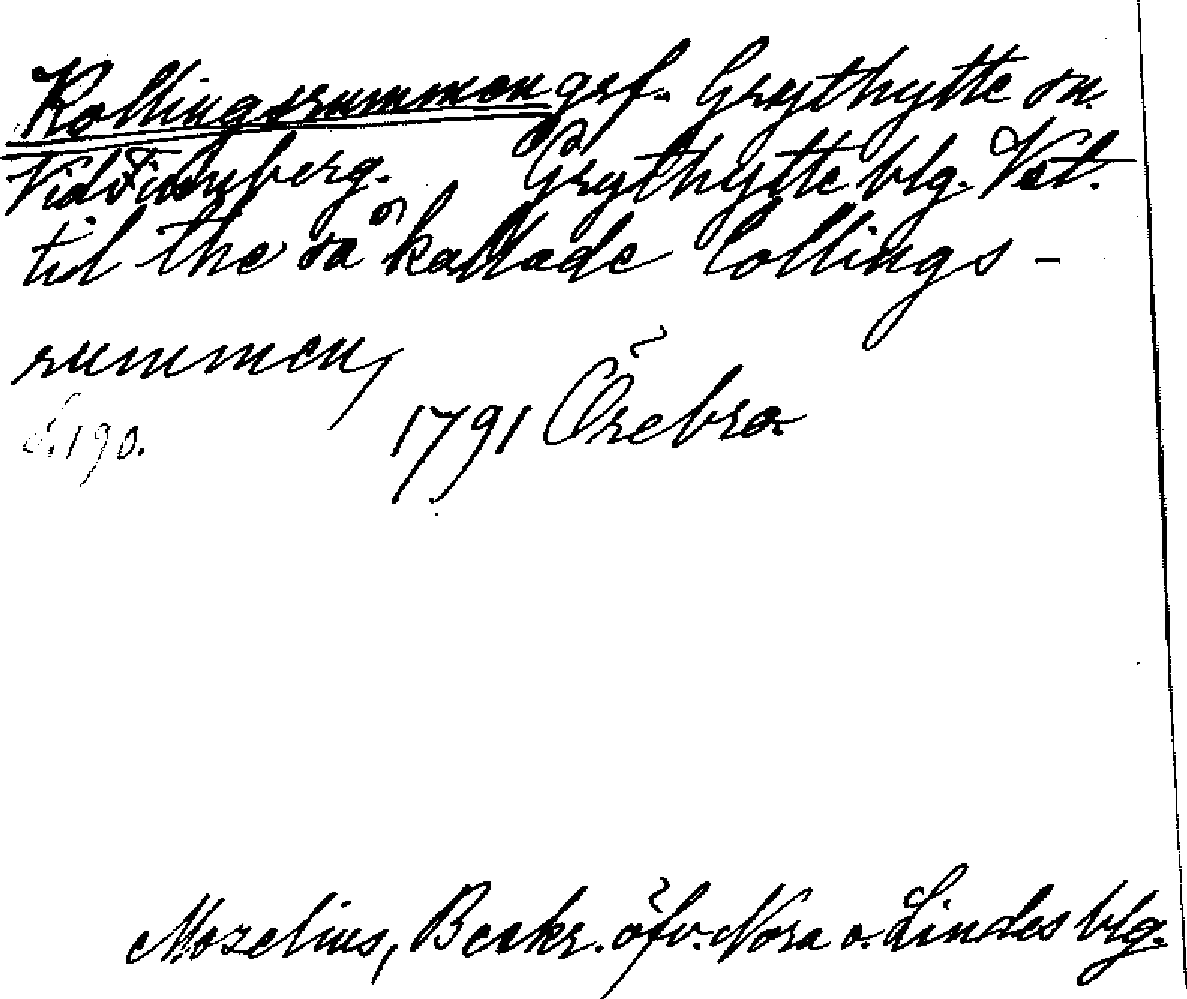 Kollingsrummen grf. Grythytte sn.
Vid Finnberg. Grythytte blg. Vst.
til the så kallade Collings-
rummen,
S. 190. 1791 Örebro
Mozelius, Beskr. öfv. Nora o. Lindes blg.